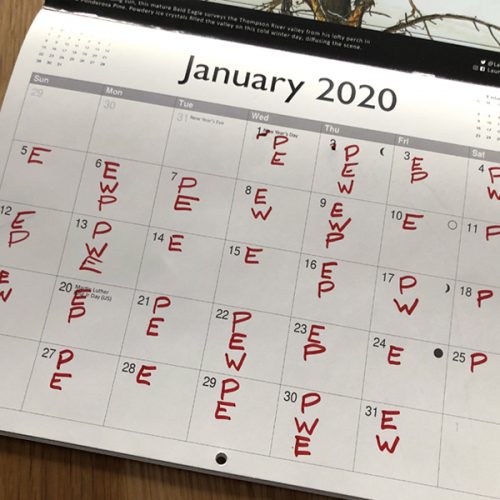 ing sun, this mature Bald Eagle surveys the Thompson River valley from his lofty perch in
Ponderosa Pine. Powdery ice crystals filled the valley on this cold winter day, diffusing the scene.
January 2020
Sun Mon Tue Wed Thu Fri Sat
29 30 31 New Year's Eve
1 New Year's Day
P
E
P
E
W
3
E
P
4
P
W
5 E
6
E
W
P
7
P
E
8
E
W
9
E
W
P
10 E
11
P
12
E
P
13
P
W
E
14 E
15 E
16
E
P
17
P
W
18
P
E
W
20 Martin Luther
Day (US)
E
P
21
P
E
22
P
E
W
23
E
P
24
E
25 P
27
P
E
28 E
29
P
E
30
P
W
E
31
E
W
1